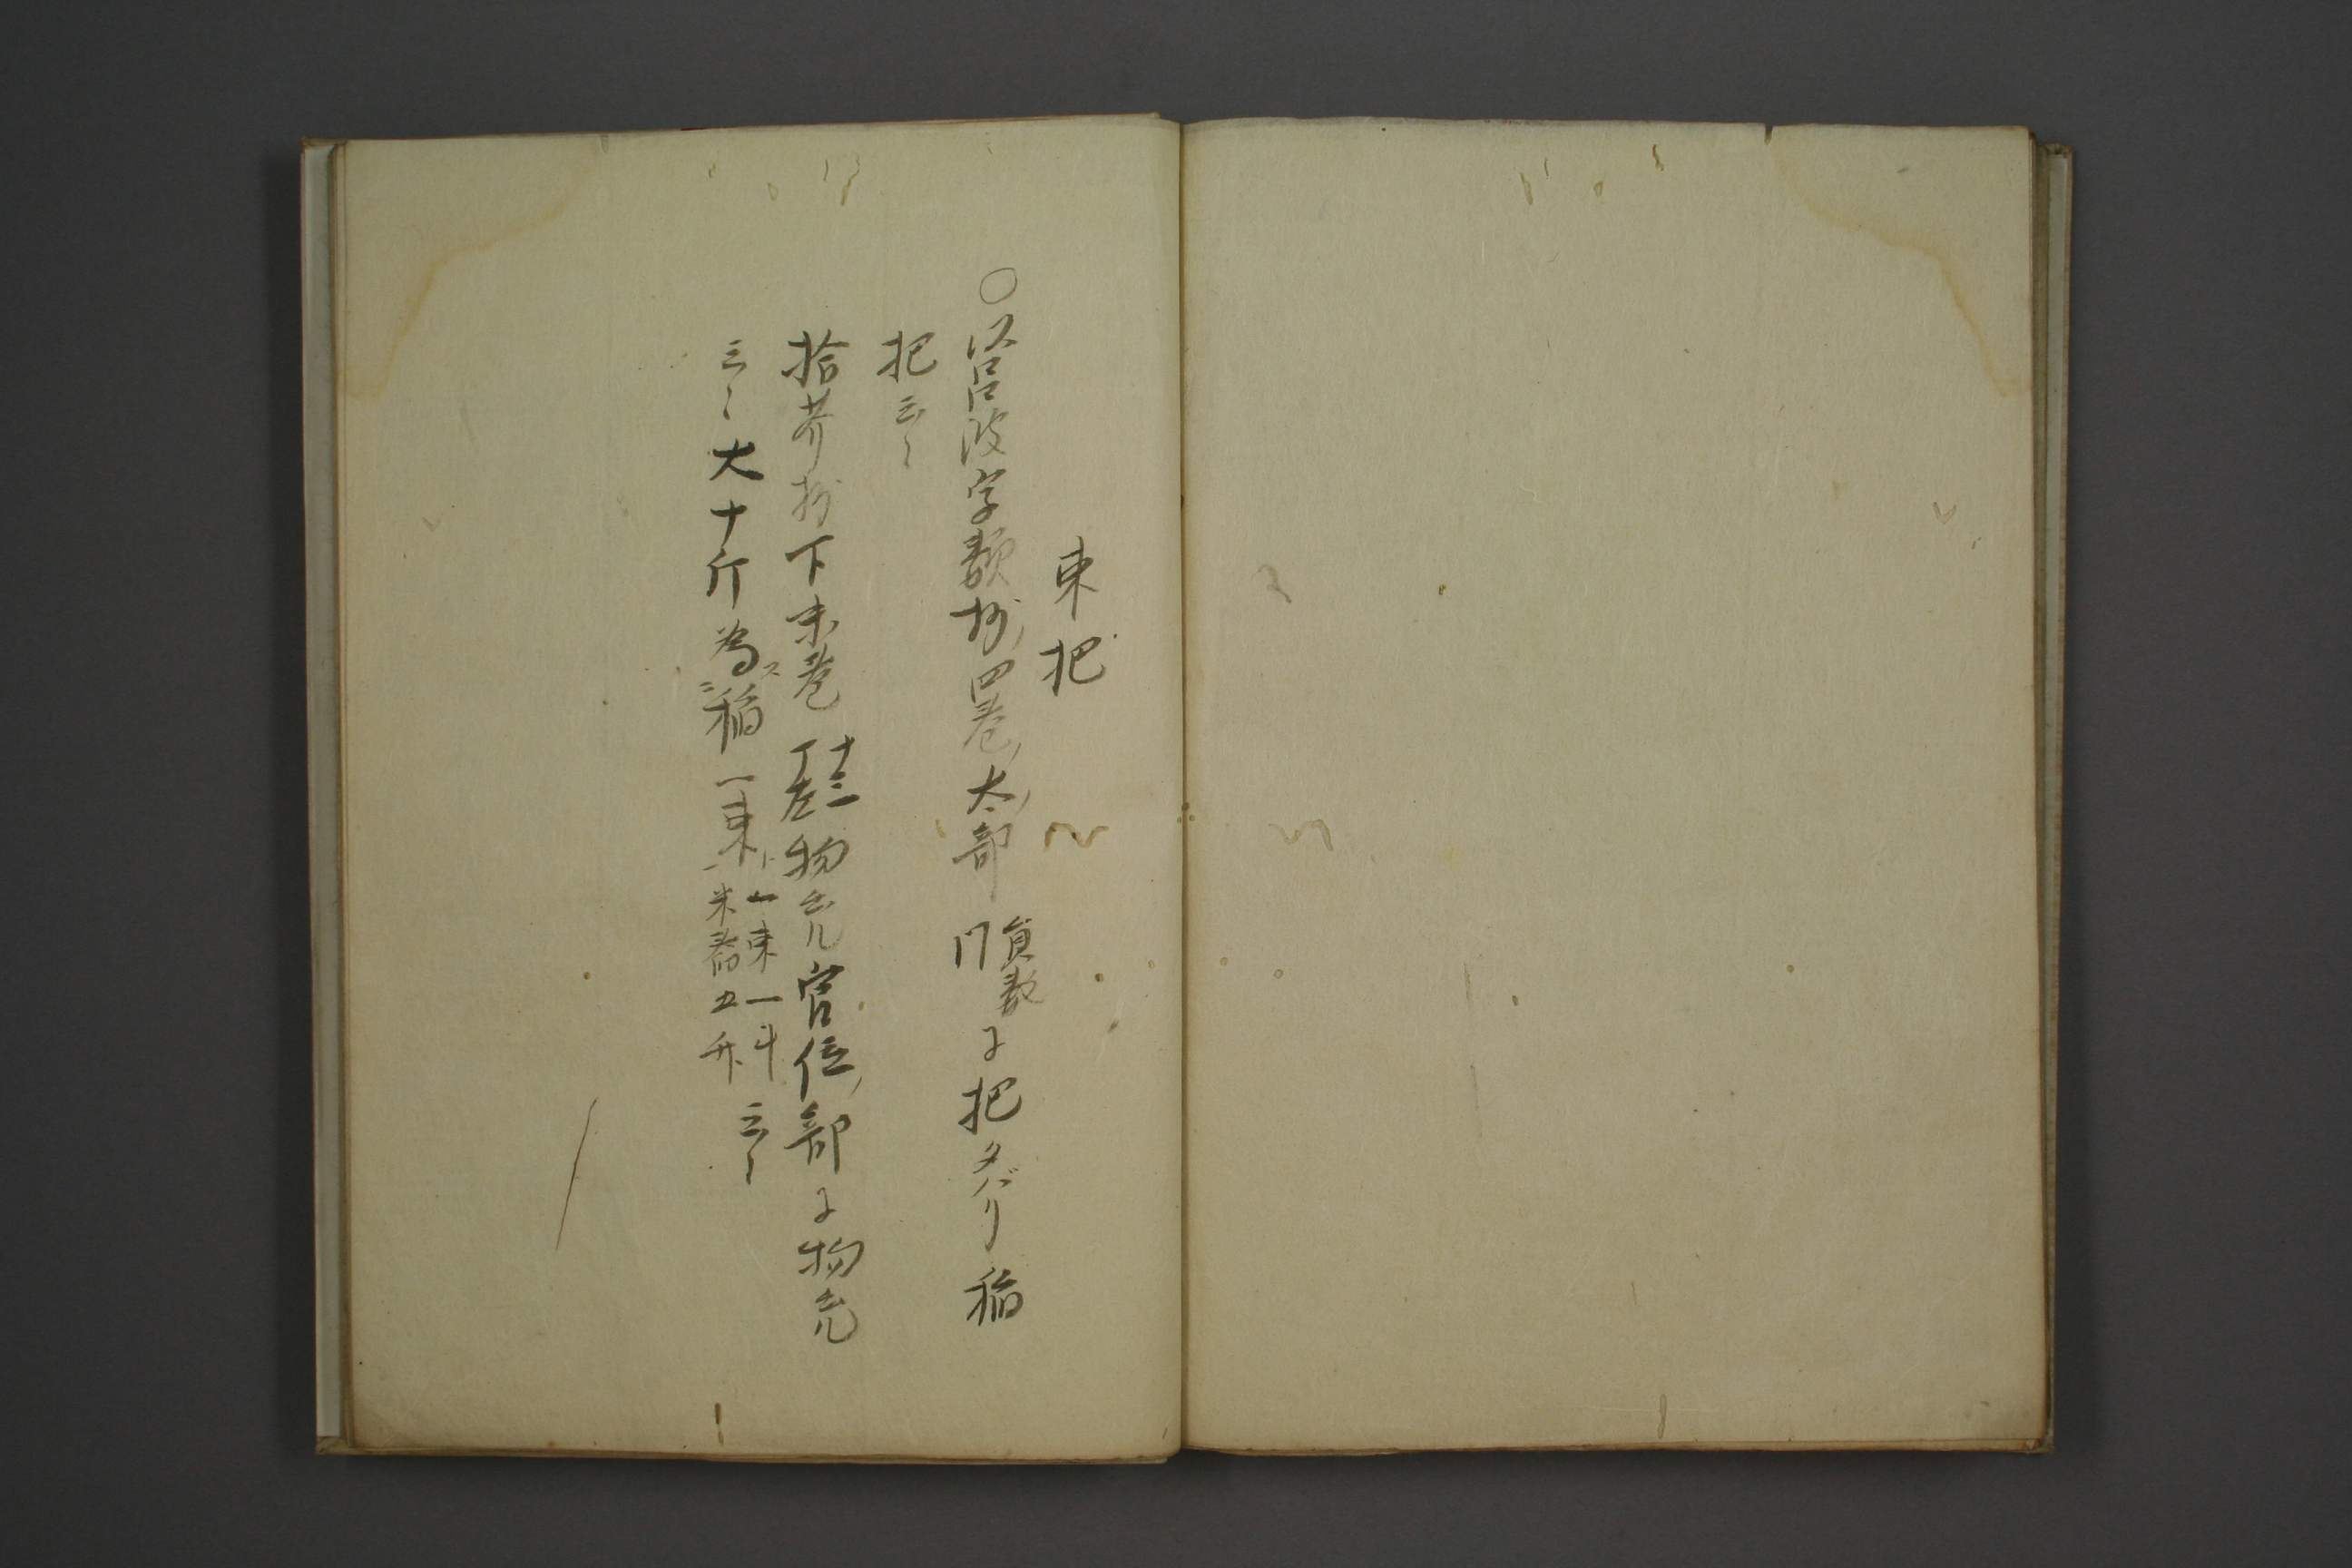 束把
○以呂波字類抄四巻太部員数門に把タバリ稲
把云々
拾芥抄下末巻十三丁左物売官位部に物売
云々大十斤為ス二稲一束ト一一束一斗米者五升云々